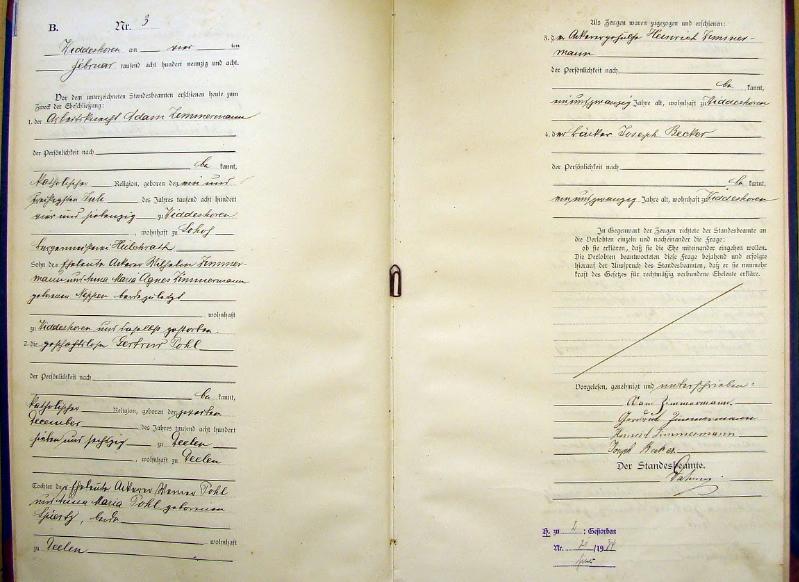 B.
Nr. 3
Widdeshoven am vier ten
Februar tausend acht hundert neunzig und acht.
Vor dem unterzeichneten Standesbeamten erschienen heute zum
Zweck der Eheschließung:
1. der Ackerknecht Adam Zimmermann
der Persönlichkeit nach
be kannt,
katholischer Religion, geboren den ein und
dreißigsten Juli des Jahres tausend acht hundert
vier und siebenzig zu Widdeshoven
, wohnhaft zu
Bürgermeisterei Hülchrath
Sohn der Eheleute Ackerer Wilhelm Zimmer-
mann und Anna Maria Agnes Zimmermann
geborenen beide zuletzt
wohnhaft
zu Widdeshoven und daselbst gestorben.
2. die geschäftslose Gertrud Pohl
der Persönlichkeit nach
be kannt,
katholischer Religion, geboren den
December des Jahres tausend acht hundert
sieben und sechzig zu
, wohnhaft zu
Tochter der Eheleute Ackerer Werner Pohl
und Anna Maria Pohl geborenen
, beide
wohnhaft
zu
Als Zeugen waren zugezogen und erschienen:
3. der Ackerergehülfe Heinrich Zimmer-
mann
der Persönlichkeit nach
be kannt,
ein und zwanzig Jahre alt, wohnhaft zu Widdeshoven
4. der Bäcker Joseph Becker
der Persönlichkeit nach
be kannt,
Jahre alt, wohnhaft zu Widdeshoven
In Gegenwart der Zeugen richtete der Standesbeamte an
die Verlobten einzeln und nacheinander die Frage:
ob sie erklären, daß sie die Ehe miteinander eingehen wollen.
Die Verlobten beantworteten diese Frage bejahend und erfolgte
hierauf der Ausspruch des Standesbeamten, daß er sie nunmehr
kraft des Gesetzes für rechtmäßig verbundene Eheleute erkläre.
Vorgelesen, genehmigt und unterschrieben:
Adam Zimmermann
Gertrud Zimmermann
Heinrich Zimmermann
Joseph Becker
Der Standesbeamte.
B. zu : Gestorben
Nr. /19